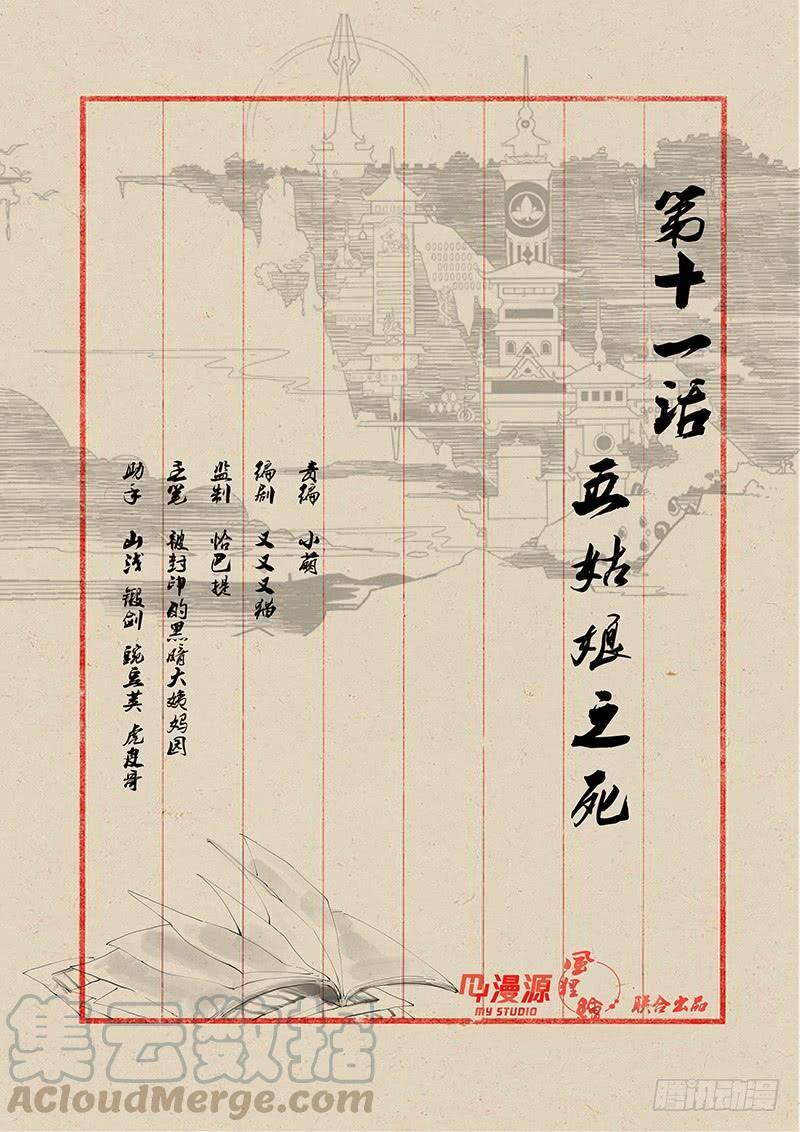 第十一话
五姑娘之死
责编 小萌
编剧 又又又猫
监制 恰巴提
主笔 被封印的黑暗大姨妈园
助手 山浅 锻剑 豌豆荚 虎皮哥
漫源
MY STUDIO
联合出品
集云数据
ACloudMerge.com
腾讯动漫